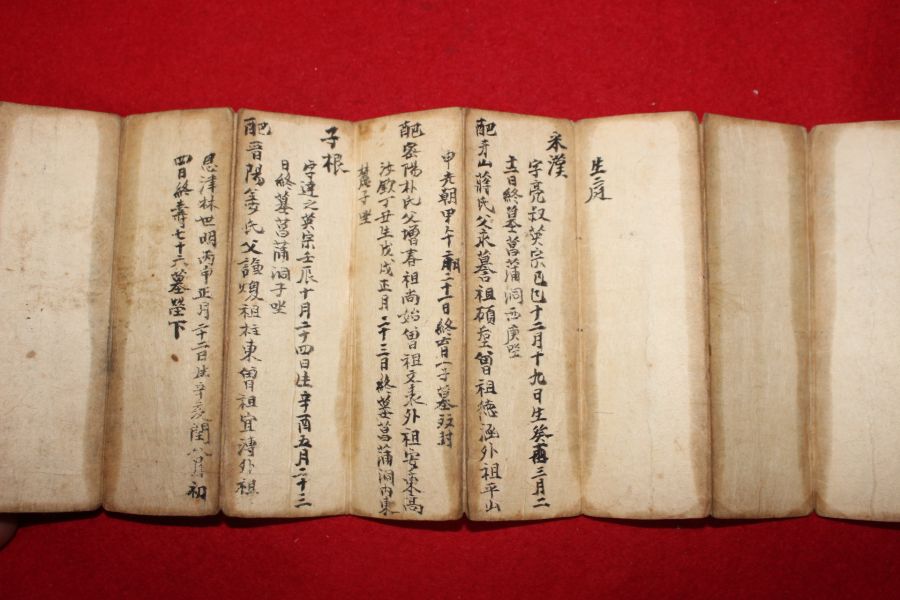 生庭
采漢
字亮叔英宗己巳十二月十九日生癸酉三月二
十二日終墓菖蒲洞西庚坐
配牙山蔣氏父永譽祖碩 曾祖德涵外祖平山
申光朝甲午十二月二十一日終 一子墓双封
配密陽朴氏父增春祖尚始曾祖文 外祖安東高
丁丑生戊戌正月二十三日終墓菖蒲洞內東
麓子坐
子根
字達之英宗壬辰十月二十四日生辛酉五月二十三
日終墓菖蒲洞子坐
配晋陽姜氏父 祖柱東曾祖宜溥外祖
恩津林世明丙申正月二十二日生辛亥閏八月初
四日終壽七十六墓塋下